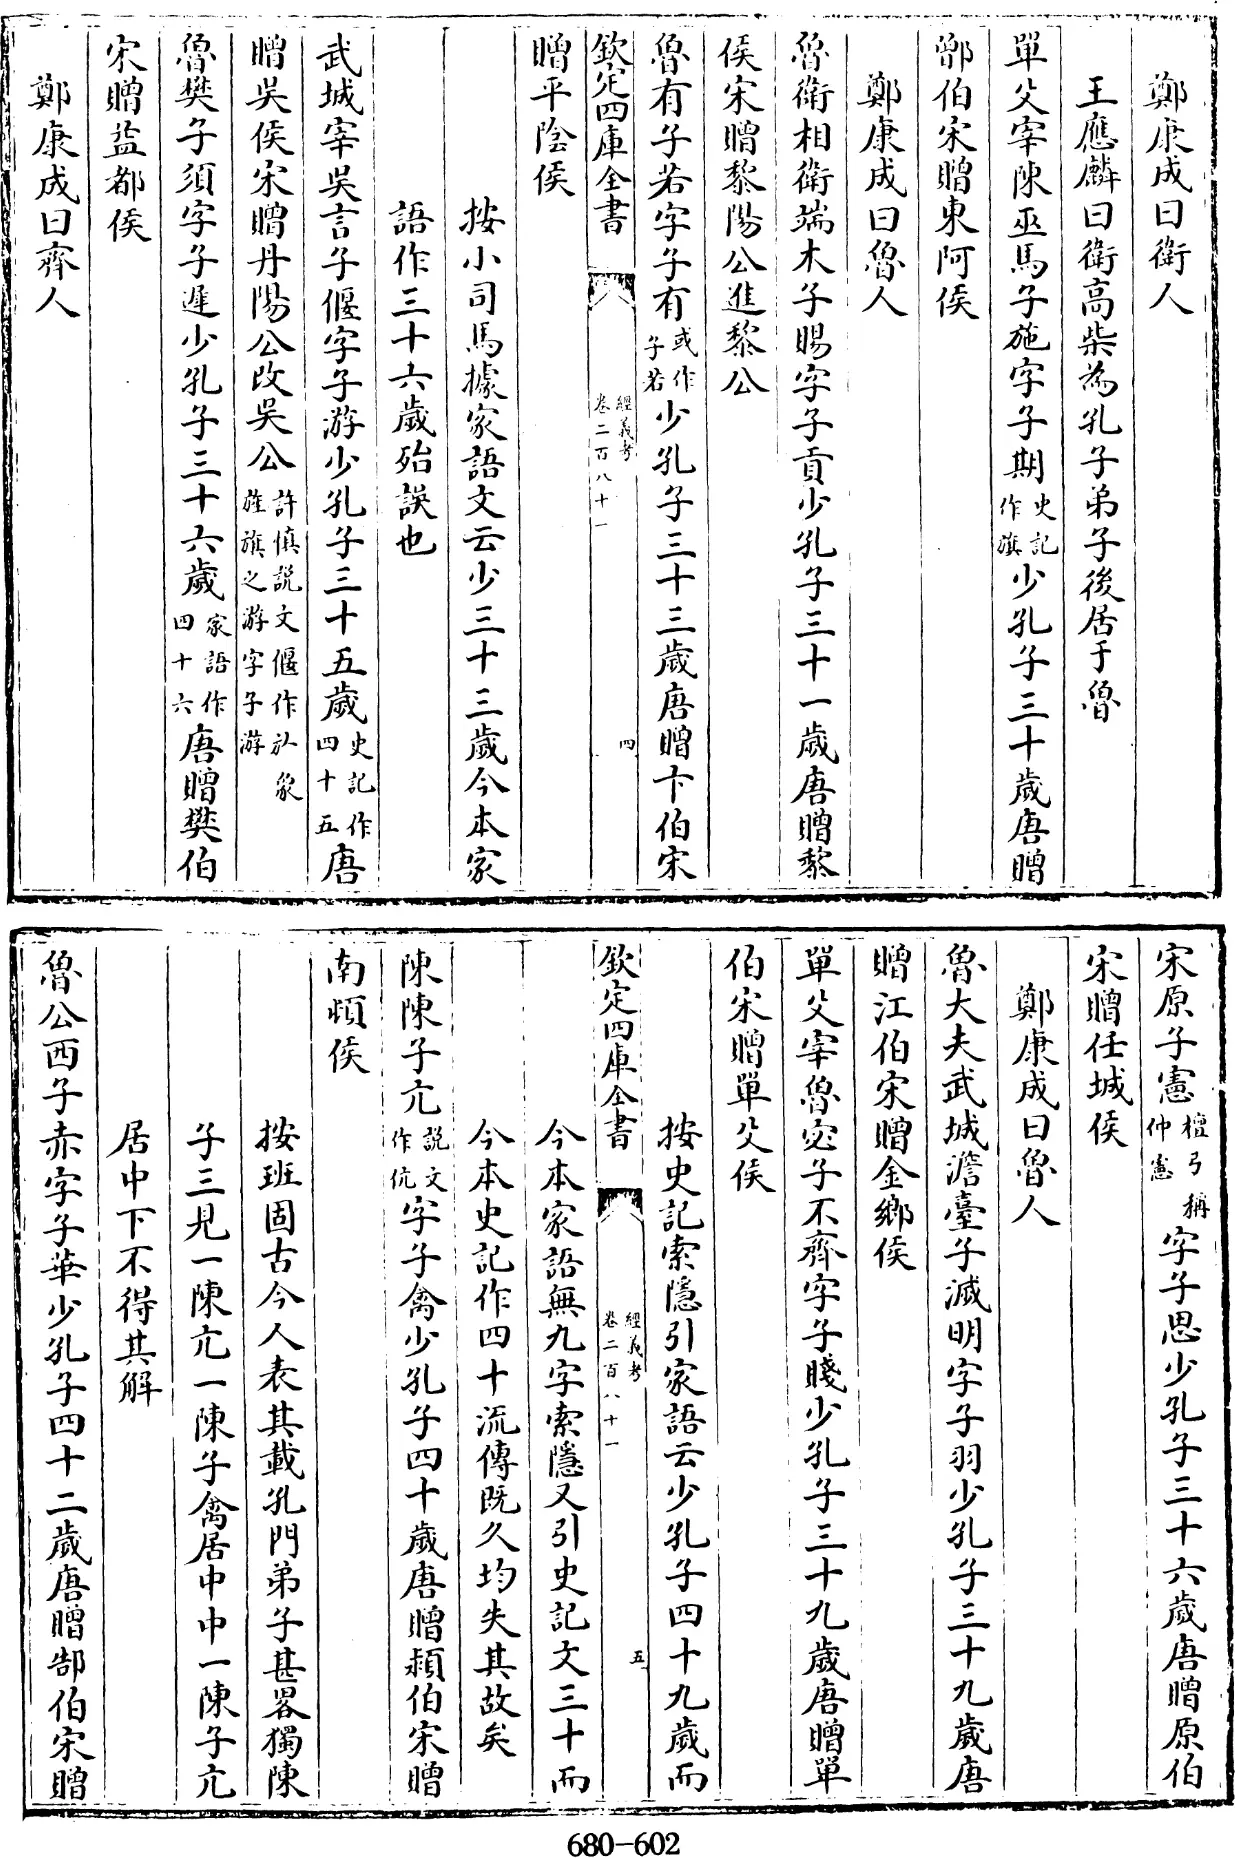 鄭康成曰衛人
王應麟曰衛高柴為孔子弟子後居于魯
單父宰陳巫馬子施字子期史記作旗少孔子三十歲唐贈
鄫伯宋贈東阿侯
鄭康成曰魯人
魯衛相衛端木子賜字子貢少孔子三十一歲唐贈黎
侯宋贈黎陽公進黎公
魯有子若字子有或作子若少孔子三十三歲唐贈卞伯宋
欽定四庫全書
經義考
卷二百八十一
四
贈平陰侯
按小司馬據家語文云少三十三歲今本家
語作三十六歲殆誤也
武城宰吳言子偃字子游少孔子三十五歲史記作四十五唐
贈吳侯宋贈丹陽公改吳公許慎說文偃作㫃象旌旗之游字子游
魯樊子須字子遲少孔子三十六歲家語作四十六唐贈樊伯
宋贈益都侯
鄭康成曰齊人
宋原子憲檀弓稱仲憲字子思少孔子三十六歲唐贈原伯
宋贈任城侯
鄭康成曰魯人
魯大夫武城澹臺子滅明字子羽少孔子三十九歲唐
贈江伯宋贈金鄉侯
單父宰魯宓子不齊字子賤少孔子三十九歲唐贈單
伯宋贈單父侯
按史記索隱引家語云少孔子四十九歲而
欽定四庫全書
經義考
卷二百八十一
五
今本家語無九字索隱又引史記文三十而
今本史記作四十流傳既久均失其故矣
陳陳子亢說文作伉字子禽少孔子四十歲唐贈潁伯宋贈
南頓侯
按班固古今人表其載孔門弟子甚畧獨陳
子三見一陳亢一陳子禽居中中一陳子亢
居中下不得其解
魯公西子赤字子華少孔子四十二歲唐贈郜伯宋贈
680-602